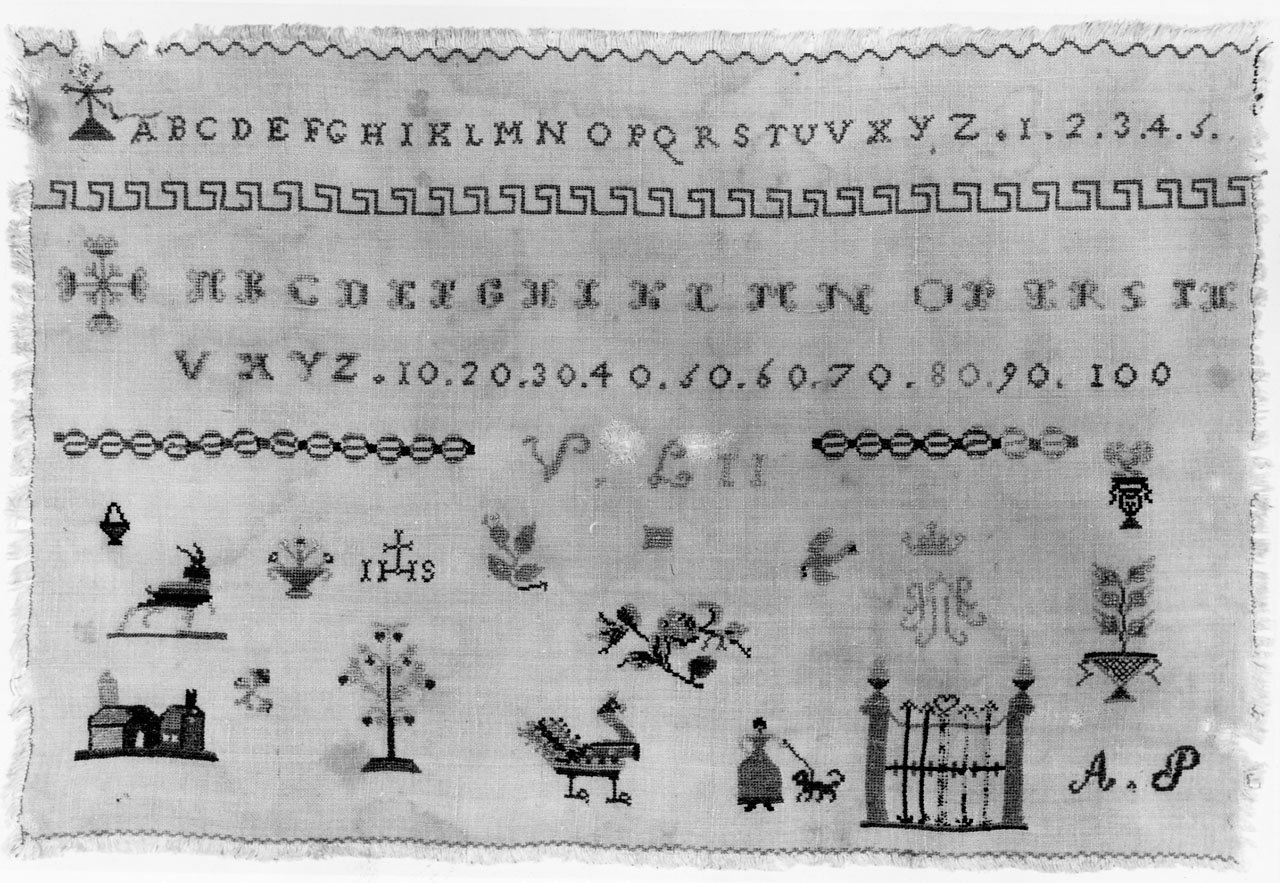 A B C D E F G H I K L M N O P Q R S T U V X Y Z . 1 . 2 . 3 . 4 . 5 .
A B C D E F G H I K L M N O P Q R S T U
V X Y Z . 10 . 20 . 30 . 40 . 50 . 60 . 70 . 80 . 90 . 100
V . L I I
IHS
A . P